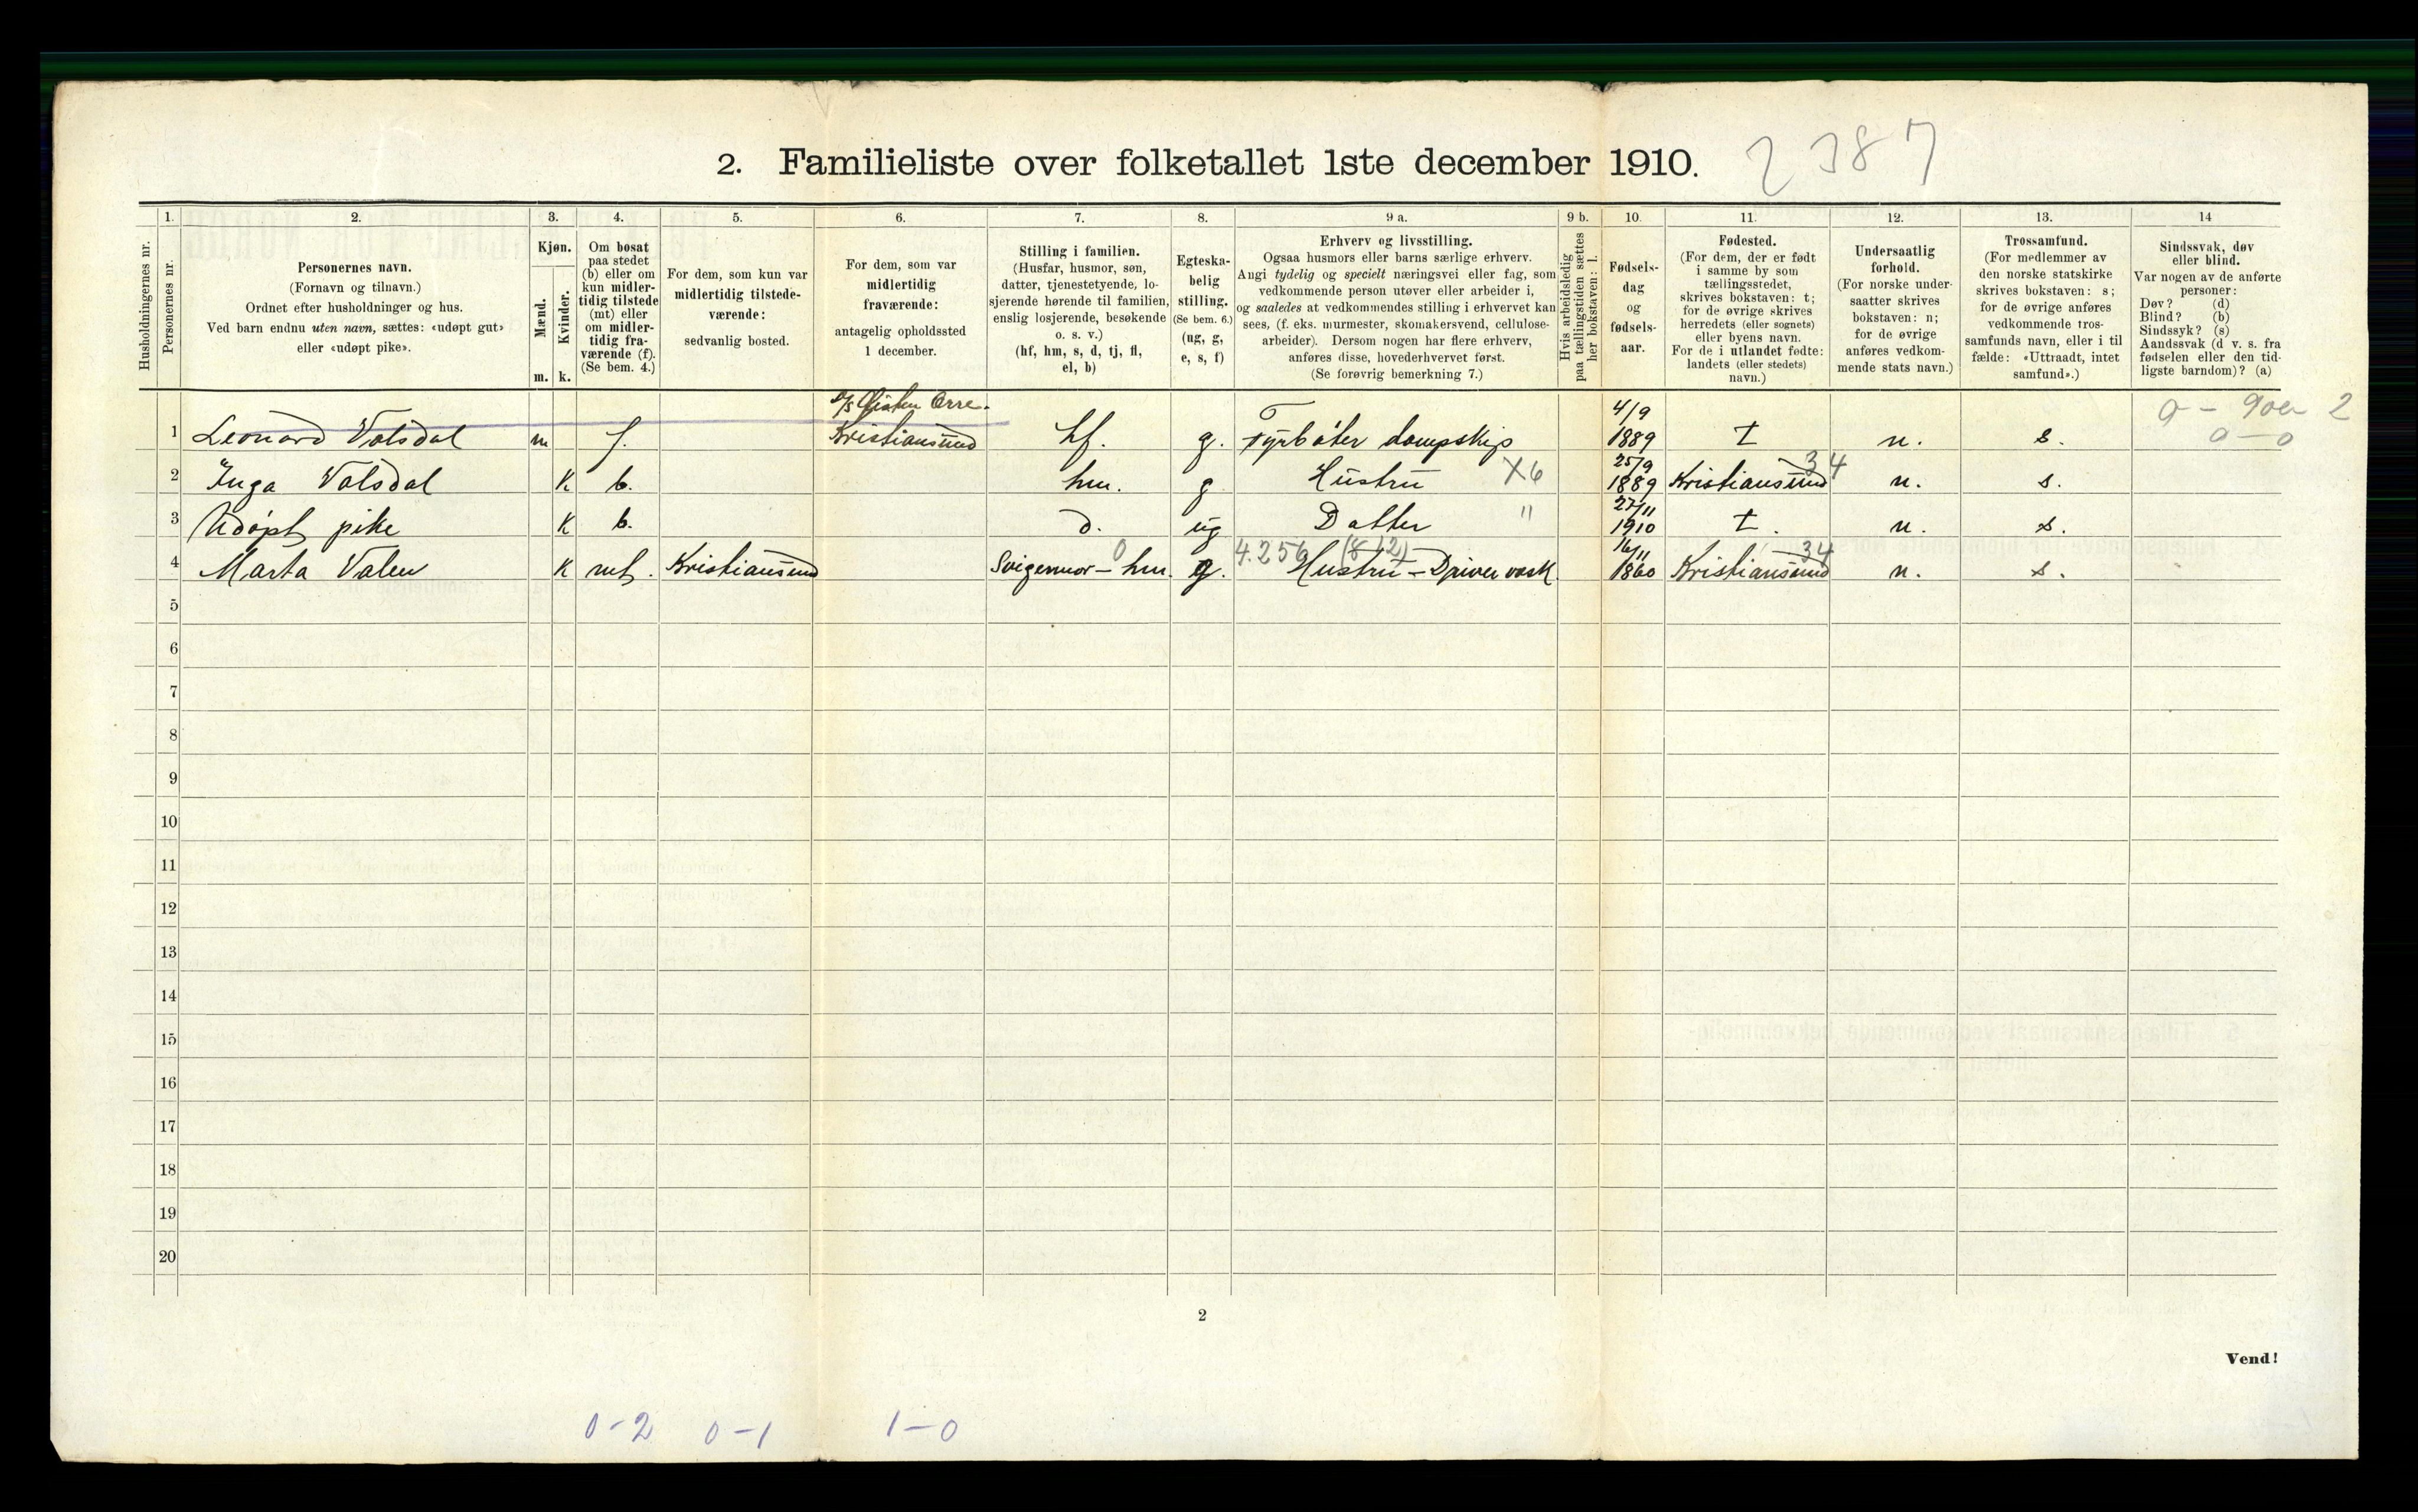 2. Familieliste over folketallet 1ste december 1910. 2387
1. 2. 3. 4. 5. 6. 7. 8. 9 a. 9 b. 10. 11. 12. 13. 14
Husholdningernes nr.
Personernes nr.
Personernes navn.
(Fornavn og tilnavn.)
Ordnet efter husholdninger og hus.
Ved barn endnu uten navn, sættes: «udøpt gut»
eller «udøpt pike».
Kjøn.
Mænd.
Kvinder.
m. k.
Om bosat
paa stedet
(b) eller om
kun midler-
tidig tilstede
(mt) eller
om midler-
tidig fra-
værende (f).
(Se bem. 4.)
For dem, som kun var
midlertidig tilstede-
værende:
sedvanlig bosted.
For dem, som var
midlertidig
fraværende:
antagelig opholdssted
1 december.
Stilling i familien.
(Husfar, husmor, søn,
datter, tjenestetyende, lo-
sjerende hørende til familien,
enslig losjerende, besøkende
o. s. v.)
(hf, hm, s, d, tj, fl,
el, b)
Egteska-
belig
stilling.
(Se bem. 6.)
(ug, g,
e, s, f)
Erhverv og livsstilling.
Ogsaa husmors eller barns særlige erhverv.
Angi tydelig og specielt næringsvei eller fag, som
vedkommende person utøver eller arbeider i,
og saaledes at vedkommendes stilling i erhvervet kan
sees, (f. eks. murmester, skomakersvend, cellulose-
arbeider). Dersom nogen har flere erhverv,
anføres disse, hovederhvervet først.
(Se forøvrig bemerkning 7.)
Hvis arbeidsledig
paa tællingstiden sættes
her bokstaven: l.
Fødsels-
dag
og
fødsels-
aar.
Fødested.
(For dem, der er født
i samme by som
tællingsstedet,
skrives bokstaven: t;
for de øvrige skrives
herredets (eller sognets)
eller byens navn.
For de i utlandet fødte:
landets (eller stedets)
navn.)
Undersaatlig
forhold.
(For norske under-
saatter skrives
bokstaven: n;
for de øvrige
anføres vedkom-
mende stats navn.)
Trossamfund.
(For medlemmer av
den norske statskirke
skrives bokstaven: s;
for de øvrige anføres
vedkommende tros-
samfunds navn, eller i til
fælde: «Uttraadt, intet
samfund».)
Sindssvak, døv
eller blind.
Var nogen av de anførte
personer:
Døv? (d)
Blind? (b)
Sindssyk? (s)
Aandssvak (d v. s. fra
fødselen eller den tid-
ligste barndom)? (a)
1 Leonard Valsdal m f. Kristiansund hf. g. Fyrbøter dampskip 4/9 1889 t n. s. 0-0
2 Inga Valsdal K b. hm. g Hustru X6 25/9 1889 Kristiansund 34 n. s.
3 Udøpt pike K b. d. ug Datter " 27/11 1910 t. n. s.
4 Marta Valen K mt. Kristiansund Svigermor - hm. 0 g. 4.256 (812) Hustru - Driver vask 16/11 1860 Kristiansund 34 n. s.
5
6
7
8
9
10
11
12
13
14
15
16
17
18
19
20
2
Vend!
0-2 0-1 1-0